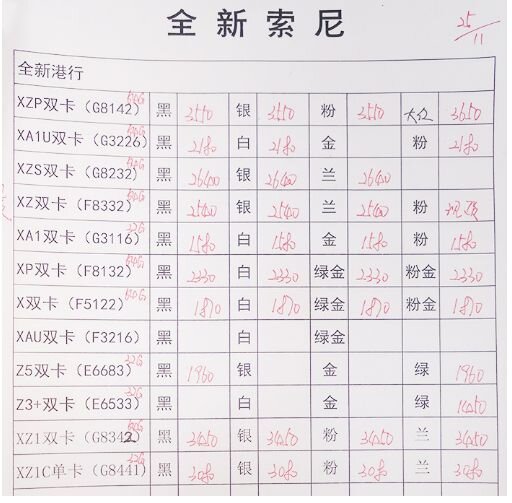 全新索尼
25/11
全新港行
XZP双卡（G8142）64G 黑 3550 银 3550 粉 3550 大红 3650
XA1U双卡（G3226）64G 黑 2180 白 2180 金 粉 2180
XZS双卡（G8232）64G 黑 26400 银 26400 兰 26400
XZ双卡（F8332）64G 黑 25400 银 25400 兰 25400 粉
XA1双卡（G3116）32G 黑 1580 白 1580 金 1580 粉 1580
XP双卡（F8132）64G 黑 2330 白 2330 绿金 2330 粉金 2330
X双卡（F5122）64G 黑 1870 白 1870 绿金 1870 粉金 1870
XAU双卡（F3216） 黑 白 绿金
Z5双卡（E6683）32G 黑 1960 银 金 绿 1960
Z3+双卡（E6533）32G 黑 白 金 绿 1450
XZ1双卡（G8342）64G 黑 3450 银 3450 粉 3450 兰 3450
XZ1C单卡（G8441）32G 黑 3080 银 3080 粉 3080 兰 3080